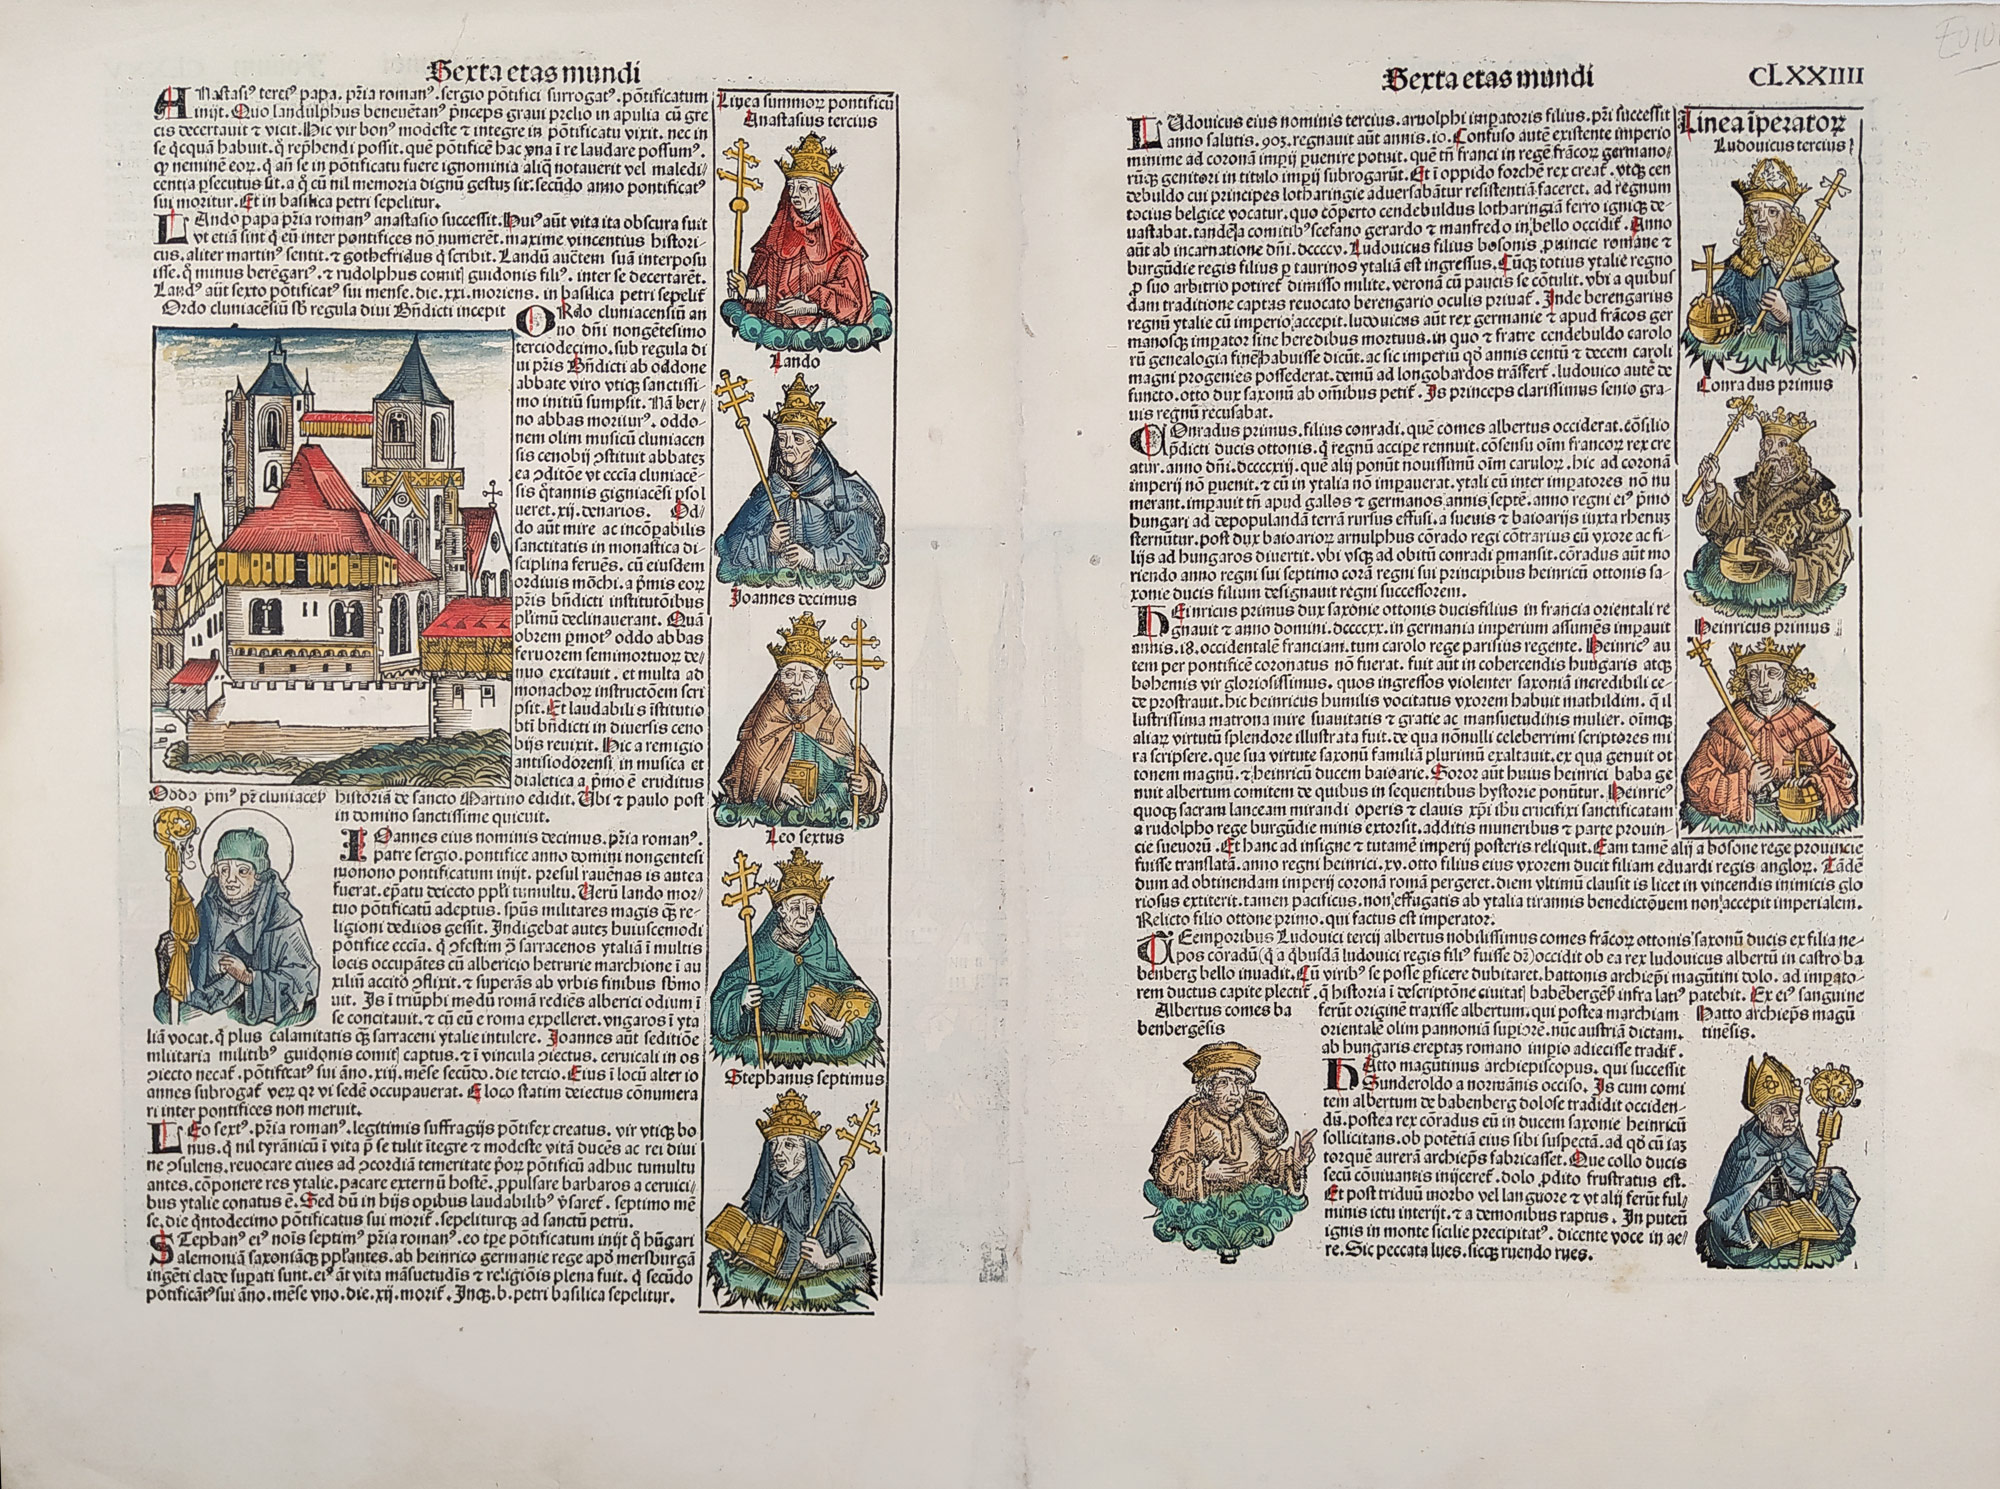 Sexta etas mundi
ANastasiꝰ terciꝰ papa. pr̄ia romanꝰ. sergio pōtifici surrogatꝰ. pōtificatum
inijt. Quo landulphus beneuētanꝰ p̄nceps graui prelio in apulia cū gre
cis decertauit ⁊ vicit. Hic vir bonꝰ modeste ⁊ integre in pōtificatu vixit. nec in
se qͥcquā habuit. qͥ rep̄hendi possit.
sui moritur. Et in basilica petri sepelitur.
LAndo papa pr̄ia romanꝰ anastasio successit. Huiꝰ aūt vita ita obscura fuit
vt etiā sint qͥ eū inter pontifices nō numerēt. maxime vincentius histori⸗
cus. aliter martinꝰ sentit. ⁊ gothefridus qͥ scribit. Landū auctem suā interposu
isse. qͦ minus berēgariꝰ. ⁊ rudolphus comitꝭ guidonis filiꝰ. inter se decertarēt.
Landꝰ aūt sexto pōtificatꝰ sui mense. die. xxi. moriens. in basilica petri sepelit̄
Ordo cluniacēsiū sb̄ regula diui Bn̄dicti incepit
ORdo cluniacensiū an
no dn̄i nongētesimo
terciodecimo. sub regula di
ui pr̄is Bn̄dicti ab oddone
abbate viro vtiqꝫ sanctissi⸗
mo initiū sumpsit. Nā ber⸗
no abbas moriturꝰ. oddo⸗
nem olim musicū cluniacen
sis cenobij ꝯstituit abbatez
ea ꝯditōe vt eccīa cluniacē⸗
sis qͦtannis gigniacēsi ꝑsol
ueret. xij. denarios. Od⸗
do aūt mire ac incōpabilis
sanctitatis in monastica di⸗
sciplina feruēs. cū eiusdem
ordinis mōchi. a p̄mis eorꝫ
pr̄is bn̄dicti institutōibus
pl̄imū declinauerant. Quā
obrem ꝑmotꝰ oddo abbas
feruorem semimortuorꝫ de⸗
nuo excitauit. et multa ad
monachorꝫ instructōem scri
psit. Et laudabilis īstitutio
bt̄i bn̄dicti in diuersis ceno
bijs reuixit. Hic a remigio
antisiodorensi in musica et
dialetica a p̄mo ē eruditus
historiā de sancto Martino edidit. Ubi ⁊ paulo post
in domino sanctissime quieuit.
Oddo p̄mꝰ pr̄ cluniaceñ
IOannes eius nominis decimus. pr̄ia romanꝰ.
patre sergio. pontifice anno domini nongentesi
monono pontificatum inijt. presul rauēnas is antea
fuerat. ep̄atu deiecto pp̄li tumultu. Uerū lando mor⸗
tuo pōtificatū adeptus. sp̄us militares magis qͣꝫ re⸗
ligioni deditos gessit. Indigebat autez huiuscemodi
pōtifice eccīa. qͥ ꝯfestim ꝯ̄ sarracenos ytaliā ī multis
locis occupātes cū albericio hetrurie marchione ī au
xiliū accito ꝯflixit. ⁊ superās ab vrbis finibus sb̄mo
uit. Is ī triūphi modū romā rediēs alberici odium ī
se concitauit. ⁊ cū eū e roma expelleret. vngaros ī yta
liā vocat. qͥ plus calamitatis qͣꝫ sarraceni ytalie intulere. Joannes aūt seditiōe
militaria militibꝰ guidonis comitꝭ captus. ⁊ ī vincula ꝯiectus. ceruicali in os
ꝯiecto necat̄. pōtificatꝰ sui āno. xiij. mēse secūdo. die tercio. Eius ī locū alter io
annes subrogat̄ verꝫ qꝛ vi sedē occupauerat. E loco statim deiectus cōnumera
ri inter pontifices non meruit.
LEo sextꝰ. pr̄ia romanꝰ. legitimis suffragijs pōtifex creatus. vir vtiqꝫ bo
nus. qͥ nil tyrānicū ī vita p̄ se tulit ītegre ⁊ modeste vitā ducēs ac rei diui
ne ꝯsulens. reuocare ciues ad ꝯcordiā temeritate p̄orꝫ pōtificū adhuc tumultu
antes. cōponere res ytalie. pacare externū hostē. ꝓpulsare barbaros a ceruici⸗
bus ytalie conatus ē. Sed dū in hijs oꝑibus laudabilibꝰ v̄saret̄. septimo mē
se. die qͥntodecimo pōtificatus sui morit̄. sepeliturqꝫ ad sanctū petrū.
STephanꝰ eiꝰ nōis septimꝰ pr̄ia romanꝰ. eo tꝑe pōtificatum inijt qͦ hūgari
alemoniā saxoniāqꝫ pp̄lantes. ab heinrico germanie rege apō mersburgā
ingēti clade suꝑati sunt. eiꝰ āt vita māsuetudīs ⁊ religiōis plena fuit. qͥ secūdo
pōtificātꝰ sui āno. mēse vno. die. xij. morit̄. Inqꝫ. b. petri basilica sepelitur.
Linea summorꝫ pontificū
Anastasius tercius
Lando
Joannes decimus
Leo sextus
Stephanus septimus
Sexta etas mundi CLXXIIII
LUdouicus eius nominis tercius. arnolphi imꝑatoris filius. pr̄i successit
anno salutis. 903. regnauit aūt annis. 10. Confuso autē existente imperio
minime ad coronā imꝑij ꝑuenire potuit. quē tn̄ franci in regē frācorꝫ germano⸗
rūqꝫ genitori in titulo imꝑij subrogarūt. Et ī oppido forchē rex creat̄. vtqꝫ cen
debuldo cui principes lotharingie aduersabātur resistentiā faceret. ad regnum
tocius belgice vocatur. quo cōperto cendebuldus lotharingiā ferro igniqꝫ de⸗
uastabat. tandē a comitibꝰ scefano gerardo ⁊ manfredo in bello occidit̄. Anno
aūt ab incarnatione dn̄i. dccccv. Ludouicus filius bosonis ꝓuincie romane ⁊
burgūdie regis filius ꝑ taurinos ytaliā est ingressus. Cūqꝫ totius ytalie regno
ꝓ suo arbitrio potiret̄ dimisso milite. veronā cū paucis se cōtulit. vbi a quibus
dam traditione captus reuocato berengario oculis priuat̄. Inde berengarius
regnū ytalie cū imperio accepit. ludouicus aūt rex germanie ⁊ apud frācos ger
manosqꝫ imꝑator sine heredibus mortuus. in quo ⁊ fratre cendebuldo carolo
rū genealogia finē habuisse dicūt. ac sic imperiū qd̄ annis centū ⁊ decem caroli
magni progenies possederat. demū ad longobardos trāsfert̄. ludouico autē de
functo. otto dux saxonū ab om̄ibus petit̄. Is princeps clarissimus senio gra⸗
uis regnū recusabat.
COnradus primus. filius conradi. quē comes albertus occiderat. cōsilio
p̄dicti ducis ottonis. qͥ regnū accipe rennuit. cōsensu oīm francorꝫ rex cre
atur. anno dn̄i. dccccxij. quē alij ponūt nouissimū oīm carulorꝫ. hic ad coronā
imperij nō ꝑuenit. ⁊ cū in ytalia nō imꝑauerat. ytali cū inter imꝑatores nō nu
merant. imꝑauit tn̄ apud gallos ⁊ germanos annis septē. anno regni eiꝰ p̄mo
hungari ad depopulandā terrā rursus effusi. a sueuis ⁊ baioarijs iuxta rhenuz
sternūtur. post dux baioariorꝫ arnulphus cōrado regi cōtrarius cū vxore ac fi⸗
lijs ad hungaros diuertit. vbi vsqꝫ ad obitū conradi ꝑmansit. cōradus aūt mo
riendo anno regni sui septimo corā regni sui principibus heinricū ottonis sa⸗
xonie ducis filium designauit regni successorem.
HEinricus primus dux saxōie ottonis ducis filius in francia orientali re
gnauit ⁊ anno domini. dccccxx. in germania imperium assumēs imꝑauit
annis. 18. occidentalē franciam. tum carolo rege parisius regente. Heinricꝰ au
tem per pontificē coronatus nō fuerat. fuit aūt in cohercendis hungaris atqꝫ
bohemis vir gloriosissimus. quos ingressos violenter saxoniā incredibili ce⸗
de prostrauit. hic heinricus humilis vocitatus vxorem habuit mathildim. qͣ il
lustrissima matrona mire suauitatis ⁊ gratie ac mansuetudinis mulier. oīmqꝫ
aliarꝫ virtutū splendore illustrata fuit. de qua nōnulli celeberrimi scriptores mi
ra scripsere. que sua virtute saxonū familiā plurimū exaltauit. ex qua genuit ot
tonem magnū. ⁊ heinricū ducem baioarie. Soror aūt huius heinrici baba ge
nuit albertum comitem de quibus in sequentibus hystorie ponūtur. Heinricꝰ
quoqꝫ sacram lanceam mirandi operis ⁊ clauis xp̄i ihu crucifixi sanctificatam
a rudolpho rege burgūdie minis extorsit. additis muneribus ⁊ parte prouin⸗
cie sueuorū. Et hanc ad insigne ⁊ tutamē imperij posteris reliquit. Eam tamē alij a bosone rege prouincie
fuisse translatā. anno regni heinrici. xv. otto filius eius vxorem ducit filiam eduardi regis anglorꝫ. Tādē
dum ad obtinendam imperij coronā romā pergeret. diem vltimū clausit is licet in vincendis inimicis glo
riosus extiterit. tamen pacificus. non effugatis ab ytalia tirannis benedictōuem non accepit imperialem.
Relicto filio ottone primo. qui factus est imperator.
TEmporibus Ludouici tercij albertus nobilissimus comes frācorꝫ ottonis saxonū ducis ex filia ne⸗
pos cōradū (qͥ a qͥbusdā ludouici regis filiꝰ fuisse dr̄) occidit ob ea rex ludouicus albertū in castro ba
benberg bello inuadit. Cū viribꝰ se posse ꝑficere dubitaret. hattonis archiep̄i magūtini dolo. ad imꝑato⸗
rem ductus capite plectit̄. qͣ historia ī descriptōne ciuitatꝭ babēbergeñ infra latiꝰ patebit. Ex eiꝰ sanguine
ferūt originē traxisse albertum. qui postea marchiam
orientalē olim pannoniā suꝑiorē. nūc austriā dictam.
ab hungaris ereptaz romano imꝑio adiecisse tradit̄.
Albertus comes ba
benbergēsis
HAtto magūtinus archiepiscopus. qui successit
Sunderoldo a normānis occiso. Is cum comi
tem albertum de babenberg dolose tradidit occiden⸗
dū. postea rex cōradus eū in ducem saxonie heinricū
sollicitans. ob potētiā eius sibi suspectā. ad qd̄ cū iaz
torquē aurerā archiep̄s fabricasset. Que collo ducis
secū conuiuantis inijceret̄. dolo ꝓdito frustratus est.
Et post triduū morbo vel languore ⁊ vt alij ferūt ful⸗
minis ictu interijt. ⁊ a demonibus raptus. In puteū
ignis in monte sicilie precipitatꝰ. dicente voce in ae⸗
re. Sic peccata lues. sicqꝫ ruendo rues.
Hatto archiep̄s magū
tinēsis.
Linea īperatorꝫ
Ludouicus tercius
Conradus primus
Heinricus primus